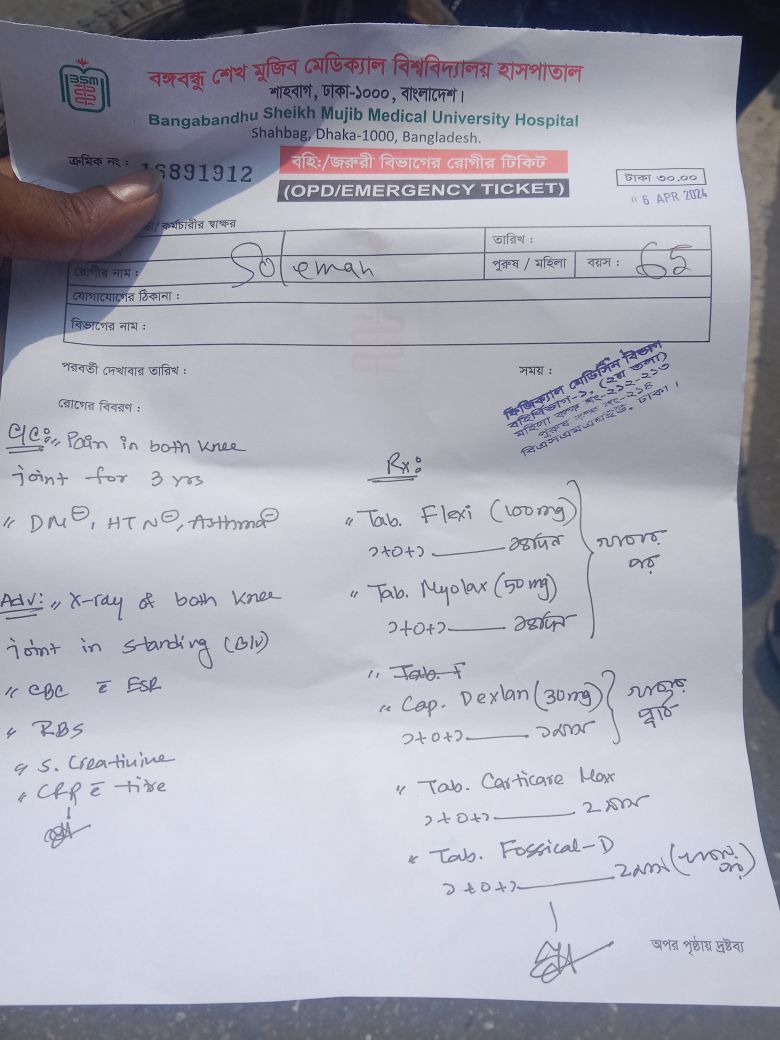 BSM
বঙ্গবন্ধু শেখ মুজিব মেডিক্যাল বিশ্ববিদ্যালয় হাসপাতাল
শাহবাগ, ঢাকা-১০০০, বাংলাদেশ।
Bangabandhu Sheikh Mujib Medical University Hospital
Shahbag, Dhaka-1000, Bangladesh.
ক্রমিক নং : 16891912
বহিঃ/জরুরী বিভাগের রোগীর টিকিট
(OPD/EMERGENCY TICKET)
টাকা ৩০.০০
6 APR 2024
কর্মচারীর স্বাক্ষর
তারিখ :
রোগীর নাম : Soleman পুরুষ / মহিলা বয়স : 65
যোগাযোগের ঠিকানা :
বিভাগের নাম :
পরবর্তী দেখাবার তারিখ : সময় :
রোগের বিবরণ :
ফিজিক্যাল মেডিসিন বিভাগ
বহির্বিভাগ-১, (২য় তলা)
মহিলা কক্ষ নং-২১২-২১৩
পুরুষ কক্ষ নং-২১৪
বিএসএমএমইউ, ঢাকা।
C/C: Pain in both knee
joint for 3 yrs
DM⊖, HTN⊖, Asthma⊖
Adv: X-ray of both knee
joint in standing (B/V)
CBC c̄ ESR
RBS
S. Creatinine
c̄ titre
Rx:
Tab. Flexi (100mg)
১+০+১ ১৪দিন
খাবার পর
Tab. Myolax (50mg)
১+০+১ ১৪দিন
Cap. Dexlan (30mg)
১+০+১ ১মাস
খাবার পূর্বে
Tab. Carticare Max
১+০+১ ২মাস
Tab. Fossical-D
১+০+১ ২মাস (খাবার পর)
অপর পৃষ্ঠায় দ্রষ্টব্য